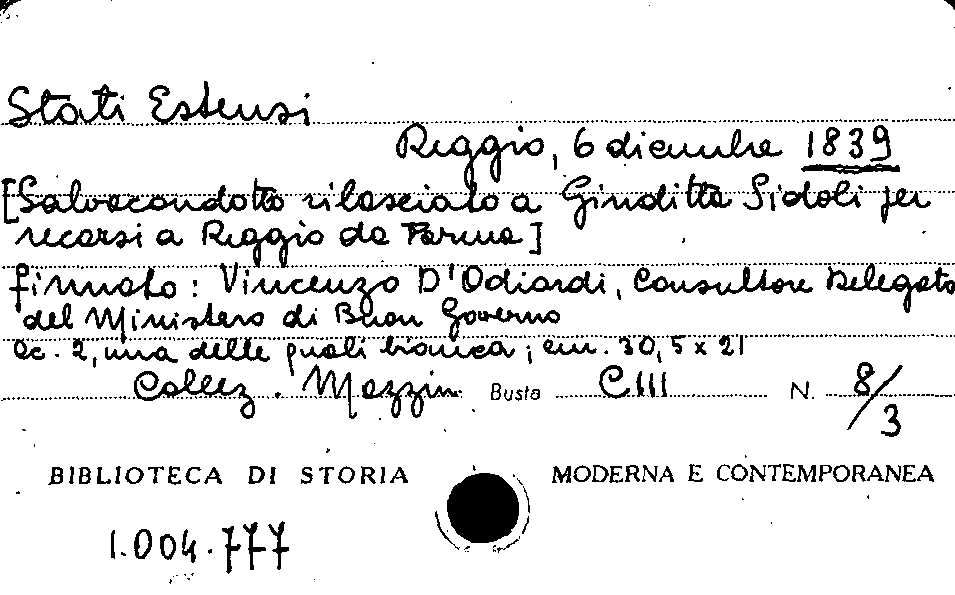 Stati Estensi
Reggio, 6 dicembre 1839
[Salvacondotto rilasciato a Giuditta Sidoli per
recarsi a Reggio da Parma]
firmato: Vincenzo D'Odiardi, Consultore Delegato
del Ministero di Buon Governo
cc. 2, una delle quali bianca; cm. 30,5 x 21
Collez. Mazzin. Busta CIII N. 8/3
BIBLIOTECA DI STORIA MODERNA E CONTEMPORANEA
1.004.777